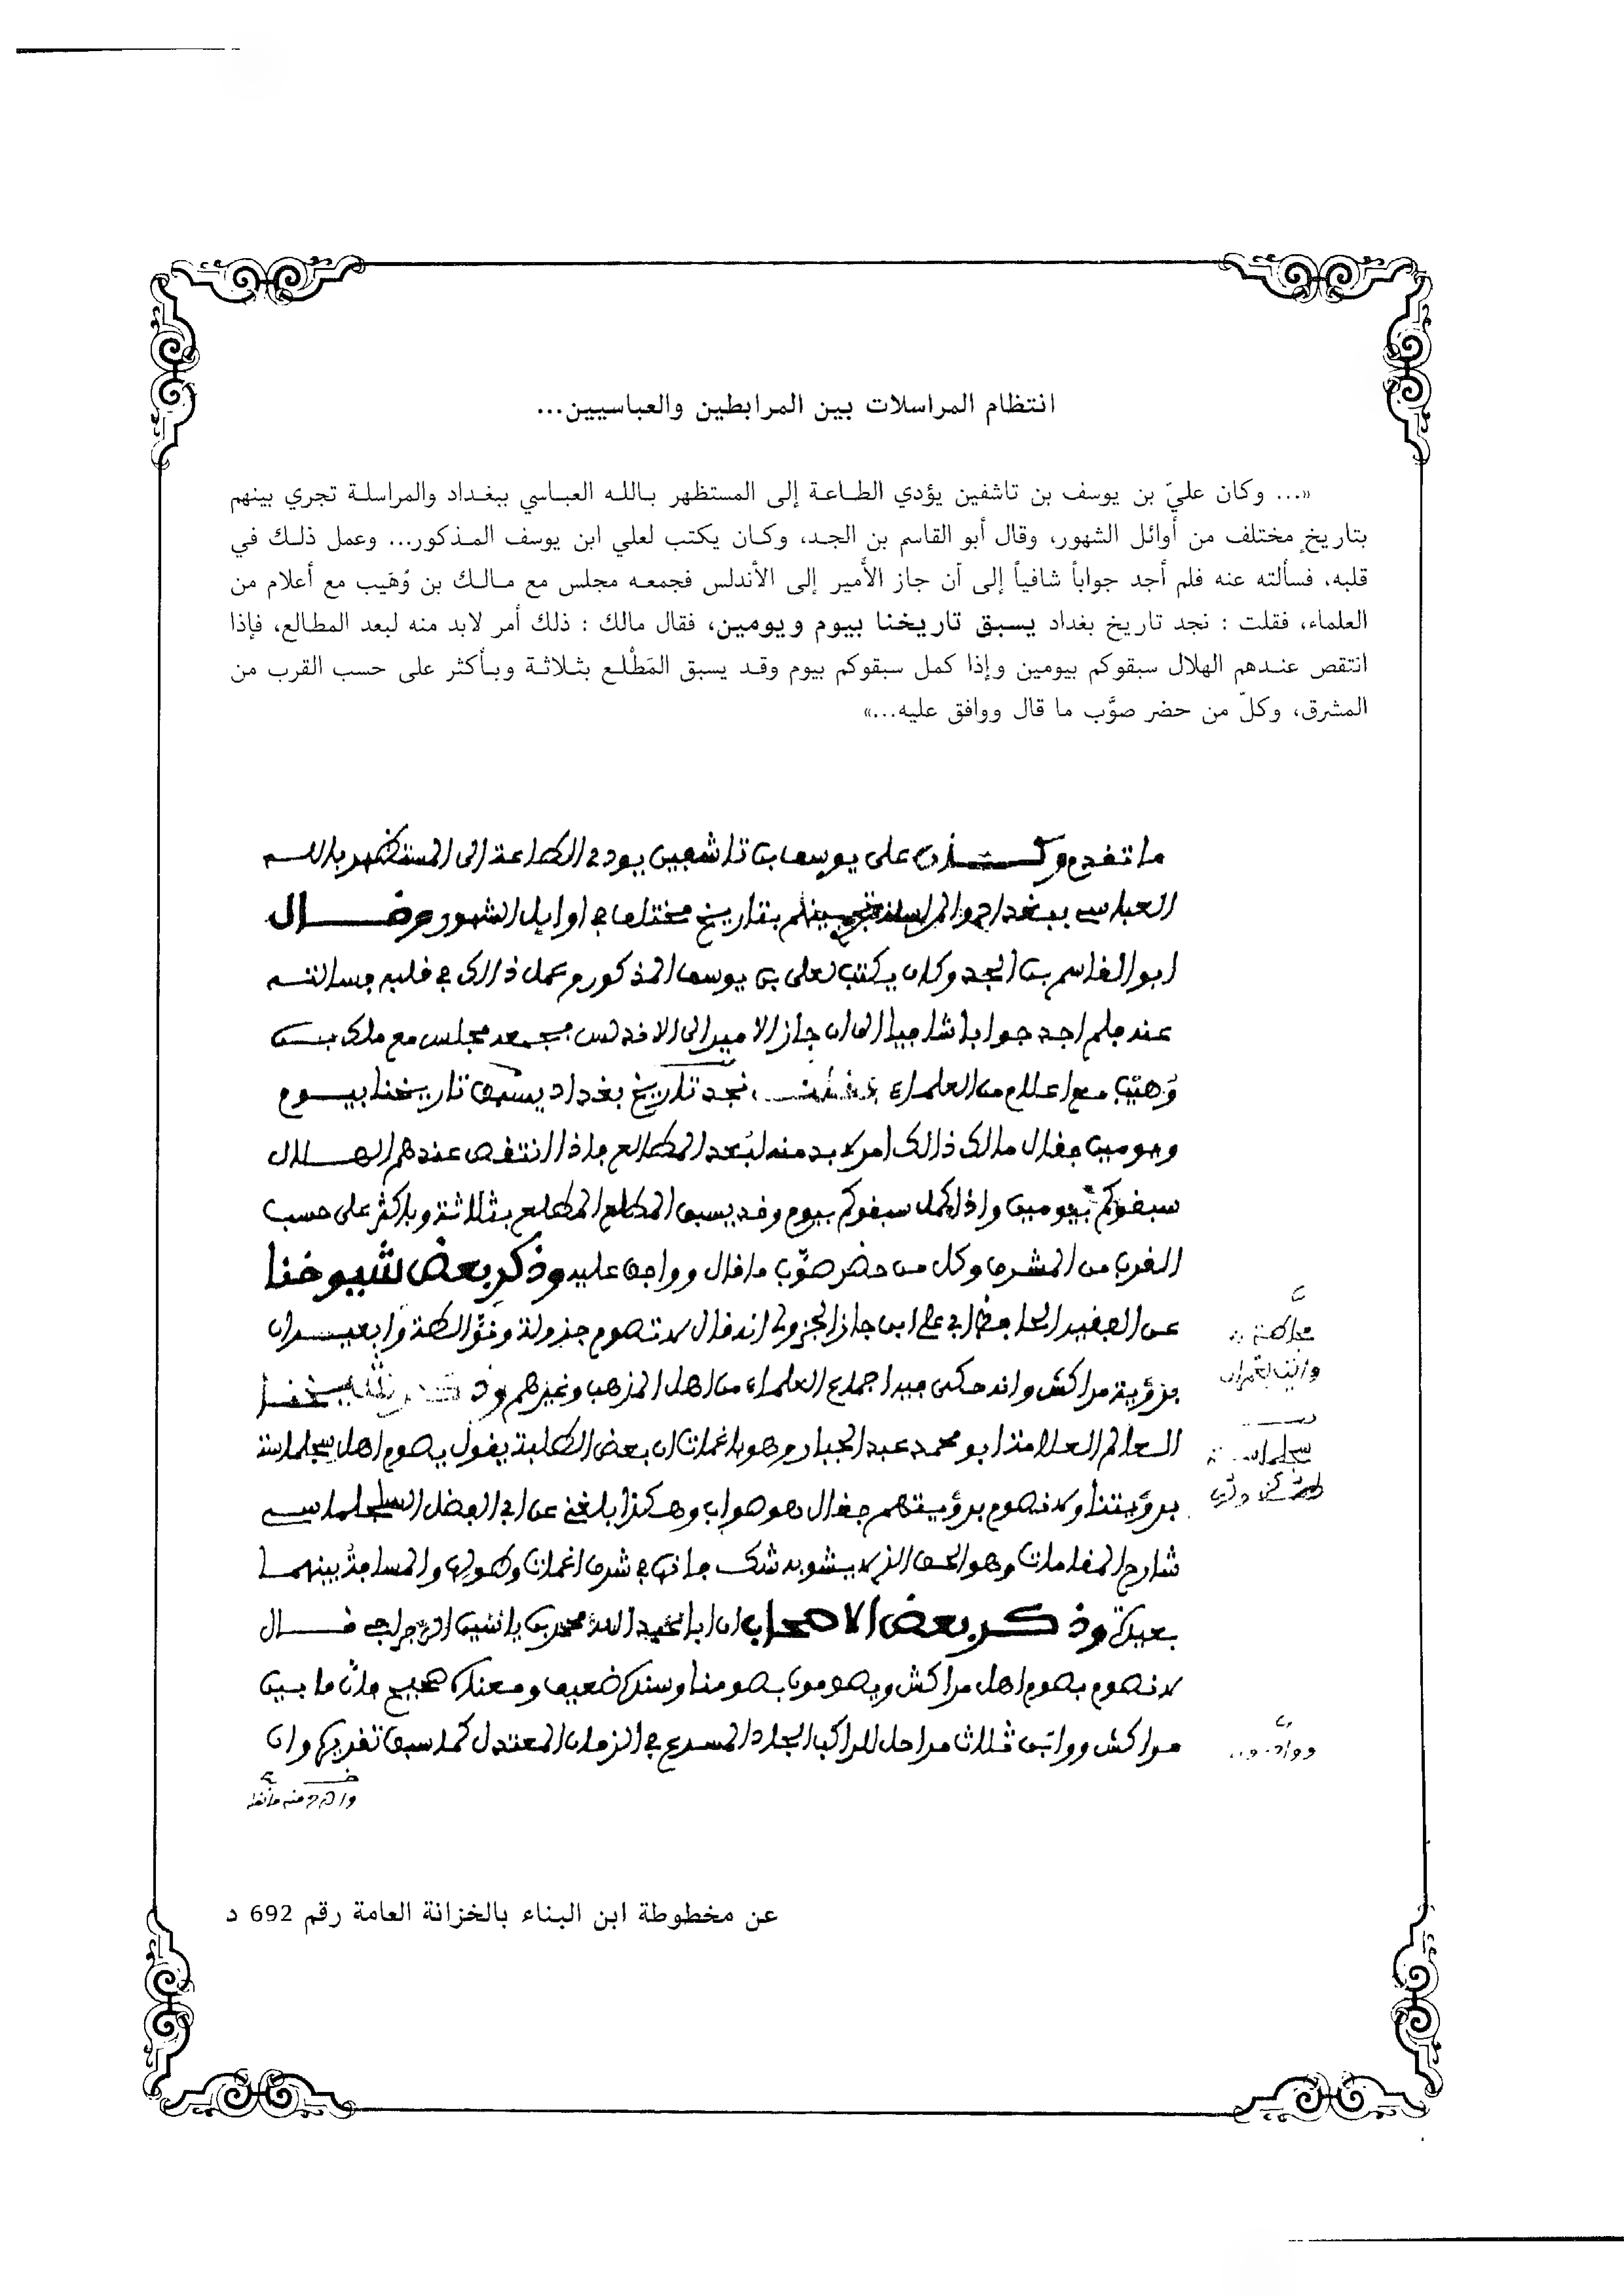 انتظام المراسلات بين المرابطين والعباسيين...
«... وكان عليّ بن يوسف بن تاشفين يؤدي الطاعة إلى المستظهر بالله العباسي ببغداد والمراسلة تجري بينهم
بتاريخٍ مختلف من أوائل الشهور، وقال أبو القاسم بن الجد، وكان يكتب لعلي ابن يوسف المذكور... وعمل ذلك في
قلبه، فسألته عنه فلم أجد جواباً شافياً إلى أن جاز الأمير إلى الأندلس فجمعه مجلس مع مالك بن وُهَيب مع أعلام من
العلماء، فقلت : نجد تاريخ بغداد يسبق تاريخنا بيوم ويومين، فقال مالك : ذلك أمر لابد منه لبعد المطالع، فإذا
انتقص عندهم الهلال سبقوكم بيومين وإذا كمل سبقوكم بيوم وقد يسبق المَطْلع بثلاثة وبأكثر على حسب القرب من
المشرق، وكلّ من حضر صوَّب ما قال ووافق عليه...»
ما تقدم وكان على يوسف بن تاشفين يودى الطاعة الى المستظهر بالله
العباسى ببغداد والمراسلة تجرى بينهم بتاريخ مختلف فى اوايل الشهور وقال
ابو القاسم بن الجد وكان يكتب لعلى بن يوسف المذكور وعمل ذالك فى قلبه فسالته
عنه فلم اجد جوابا شافيا الى ان جاز الامير الى الاندلس فجمعه مجلس مع ملك بن
وُهَيْب مع اعلام من العلماء فقلت نجد تاريخ بغداد يسبق تاريخنا بيوم
ويومين فقال مالك ذالك امر لا بد منه لبُعد المطالع فاذا انتقص عندهم الهلال
سبقوكم بيومين واذا كمل سبقوكم بيوم وقد يسبق المطلع المطلع بثلاثة وباكثر على حسب
القرب من المشرق وكل من حضر صوّب ما قال ووافق عليه وذكر بعض شيوخنا
عن الفقيه الحافظ ابى على ابن جاز الجزولى انه قال لا تصوم جزولة
برؤية مراكش وانه حكى فيه اجماع العلماء من اهل المذهب وغيرهم
العالم العلامة ابو محمد عبد الجبار وهو باغمات ان بعض الطلبة يقول يصوم اهل سجلماسة
برؤيتنا ولا نصوم برؤيتهم فقال هو صواب وهكذا بلغنى عن ابى الفضل السجلماسى
شارح المقامات وهو الحق الذى لا يشوبه شك فى شرق اغمات والمسافة بينهما
بعيدة وذكر بعض الاصحاب ان ابا عبد الله محمد بن ياسين قال
لا نصوم بصوم اهل مراكش ويصومون بصومنا وسنده ضعيف ومعناه صحيح فان ما بين
مراكش ثلاث مراحل للراكب الجاد المسرع فى الزمان المعتدل كما سبق تقديره وان
سجلماسة
عن مخطوطة ابن البناء بالخزانة العامة رقم 692 د